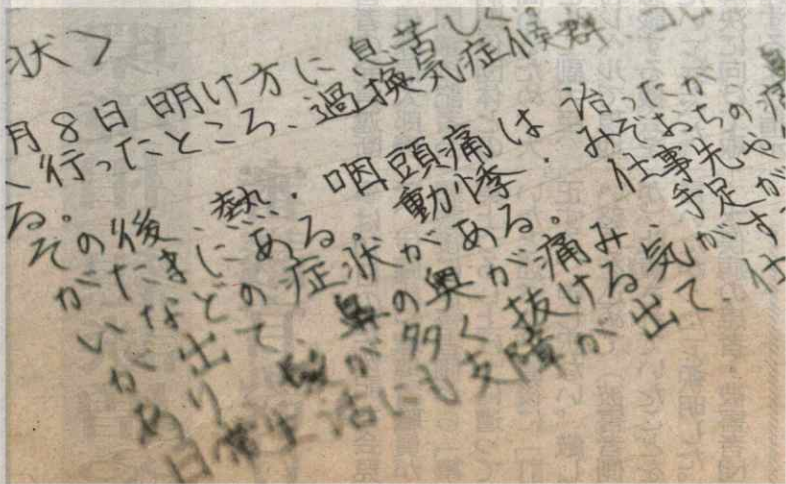 状>
月8日 明け方に息苦しく
行ったところ、過換気症候群、コロ
る。
その後、熱・咽頭痛は治ったが
がたまにある。動悸・みぞおちの痛
いなどの症状がある。仕事先や
が出て、鼻の奥が痛み、手足が
あり、髪が多く抜ける気がす
日常生活にも支障が出て、仕